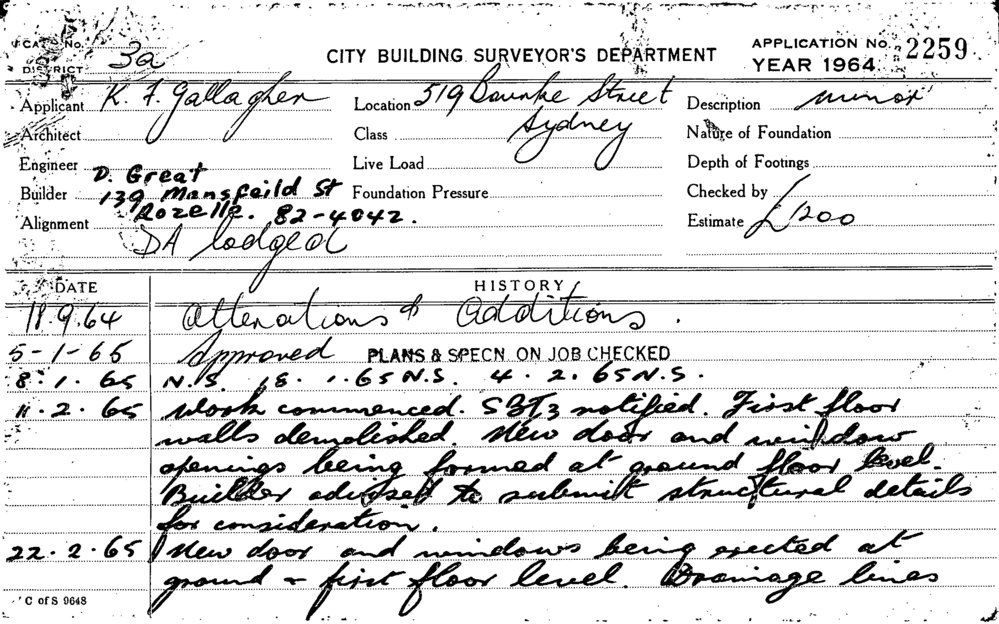 CITY BUILDING SURVEYOR'S DEPARTMENT
APPLICATION No. 2259
YEAR 1964
CARD No.
DISTRICT 3a
Applicant K. F. Gallagher
Location 519 Bourke Street
Sydney
Description minor
Architect
Class
Nature of Foundation
Engineer
Live Load
Depth of Footings
Builder D. Great
139 Mansfeild St
Rozelle. 82-4042.
Foundation Pressure
Checked by
Alignment
Estimate £1200
DA lodged
DATE
HISTORY
18.9.64 Alterations & Additions.
5-1-65 Approved PLANS & SPECN ON JOB CHECKED
8.1.65 N.S. 18.1.65 N.S. 4.2.65 N.S.
11.2.65 Work commenced. notified. First floor
walls demolished. New door and window
openings being formed at ground floor level.
Builder advised to submit structural details
for consideration.
22.2.65 New door and windows being erected at
ground & first floor level. Drainage lines
C of S 9648